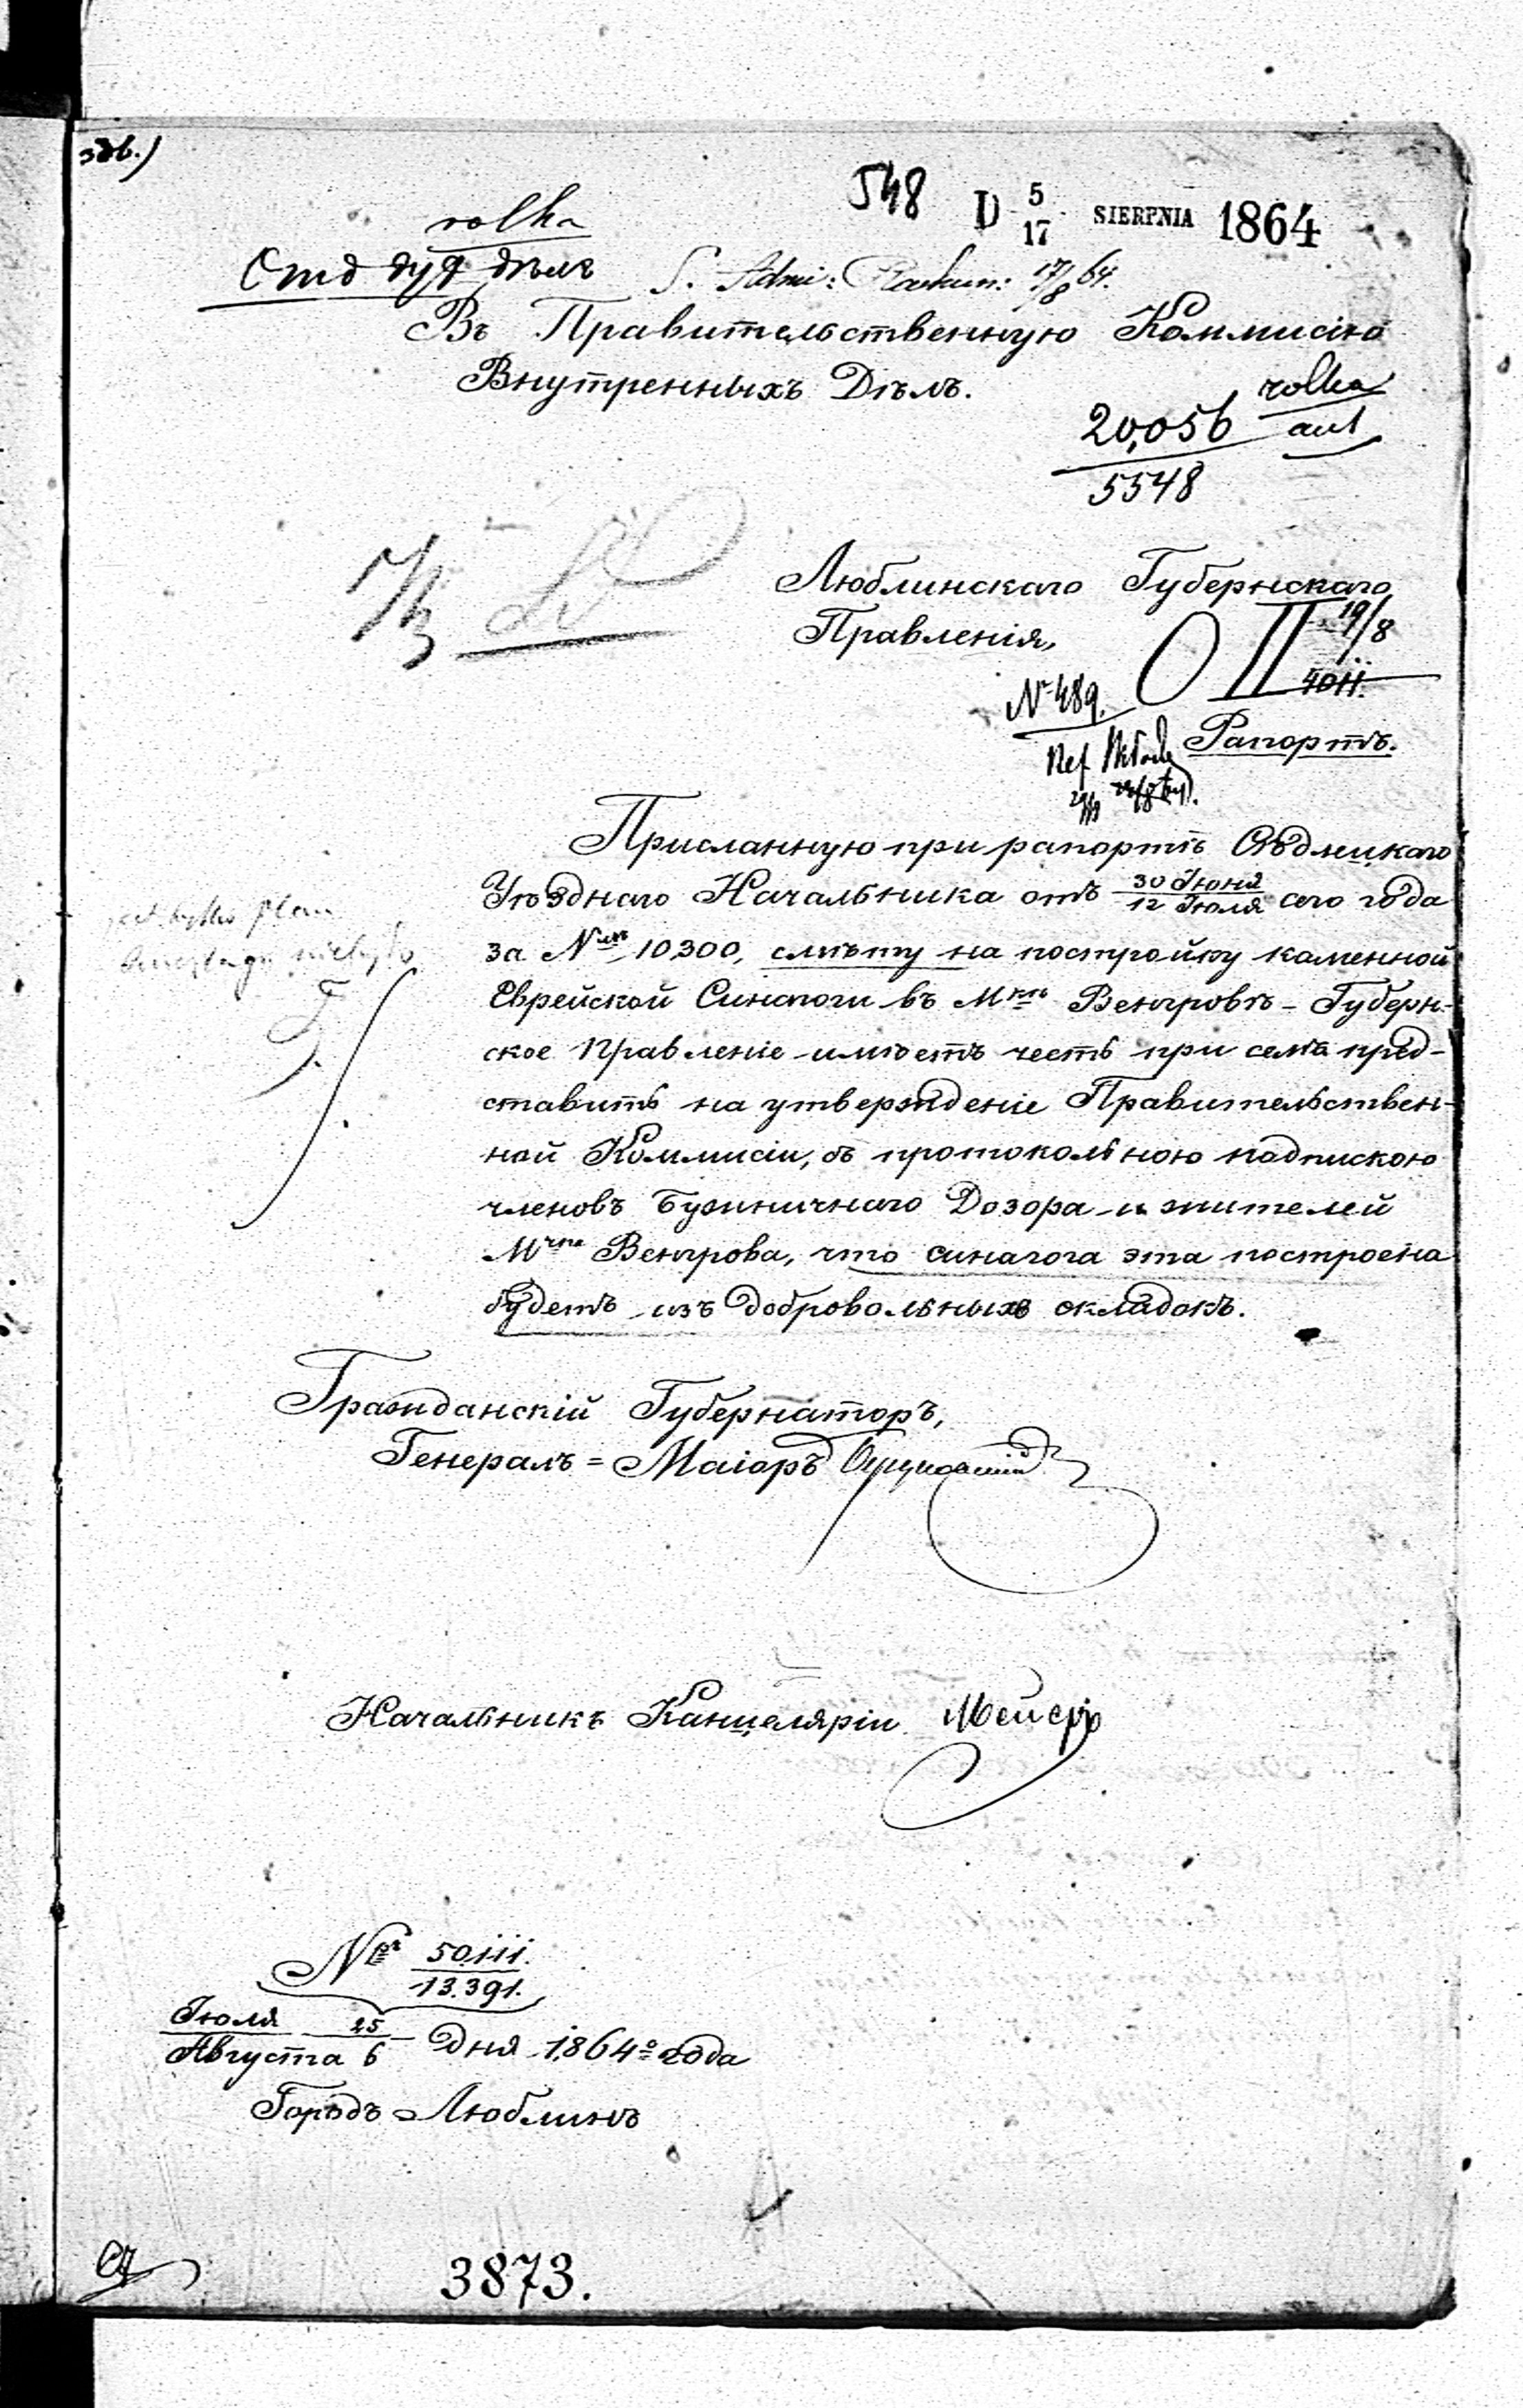 548
D 5/17 SIERPNIA 1864
rolka
Отд дух дѣлъ
17/8 64.
Въ Правительственную Коммисію
Внутренныхъ Дѣлъ.
rolka
20,056
5548
Люблинскаго Губернскаго
Правленія,
19/8
II
№ 489.
Рапортъ.
Присланную при рапортѣ Сѣдлецкаго
Уѣзднаго Начальника отъ 30 Іюня/12 Іюля сего года
за № 10,300, смѣту на постройку каменной
Еврейской Синагоги въ Мкѣ Венгровѣ - Губерн-
ское Правленіе имѣетъ честь при семъ пред-
ставить на утвержденіе Правительствен-
ной Коммисіи, съ протокольною надпискою
членовъ Бужничнаго Дозора и жителей
Мчка Венгрова, что синагога эта построена
будетъ изъ добровольныхъ складокъ.
jest tylko plan
Гражданскій Губернаторъ,
Генералъ = Маіоръ
Начальникъ Канцеляріи Мейеръ
№ 50,111.
13.391.
Іюля 25
Августа 6 Дня 1864 года
Городъ Люблинъ
3873.